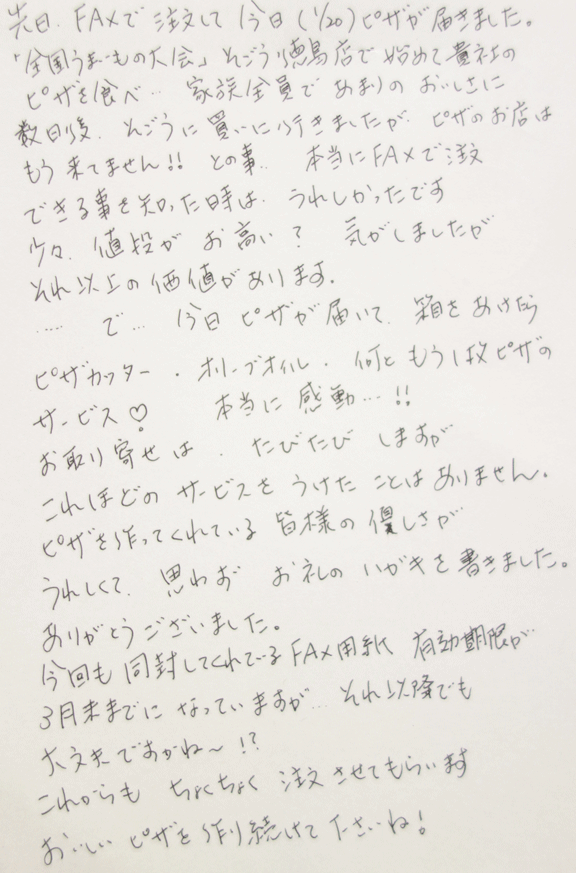 先日、FAXで注文して 今日(1/20)ピザが届きました。
「全国うまいもの大会」そごう徳島店で始めて貴社の
ピザを食べ… 家族全員であまりのおいしさに
数日後、そごうに買いに行きましたが ピザのお店は
もう来てません!! との事… 本当にFAXで注文
できる事を知った時は、うれしかったです
少々、値段が お高い? 気がしましたが
それ以上の価値があります。
…… で… 今日ピザが届いて、箱をあけたら
ピザカッター・オリーブオイル・何ともう1枚ピザの
サービス♡ 本当に感動…!!
お取り寄せは、たびたび しますが
これほどの サービスをうけたことはありません。
ピザを作ってくれている皆様の優しさが
うれしくて、思わず お礼のハガキを書きました。
ありがとうございました。
今回も同封してくれているFAX用紙 有効期限が
3月末までになっていますが… それ以降でも
大丈夫ですかね~!?
これからも ちょくちょく 注文させてもらいます
おいしいピザを作り続けて下さいね!